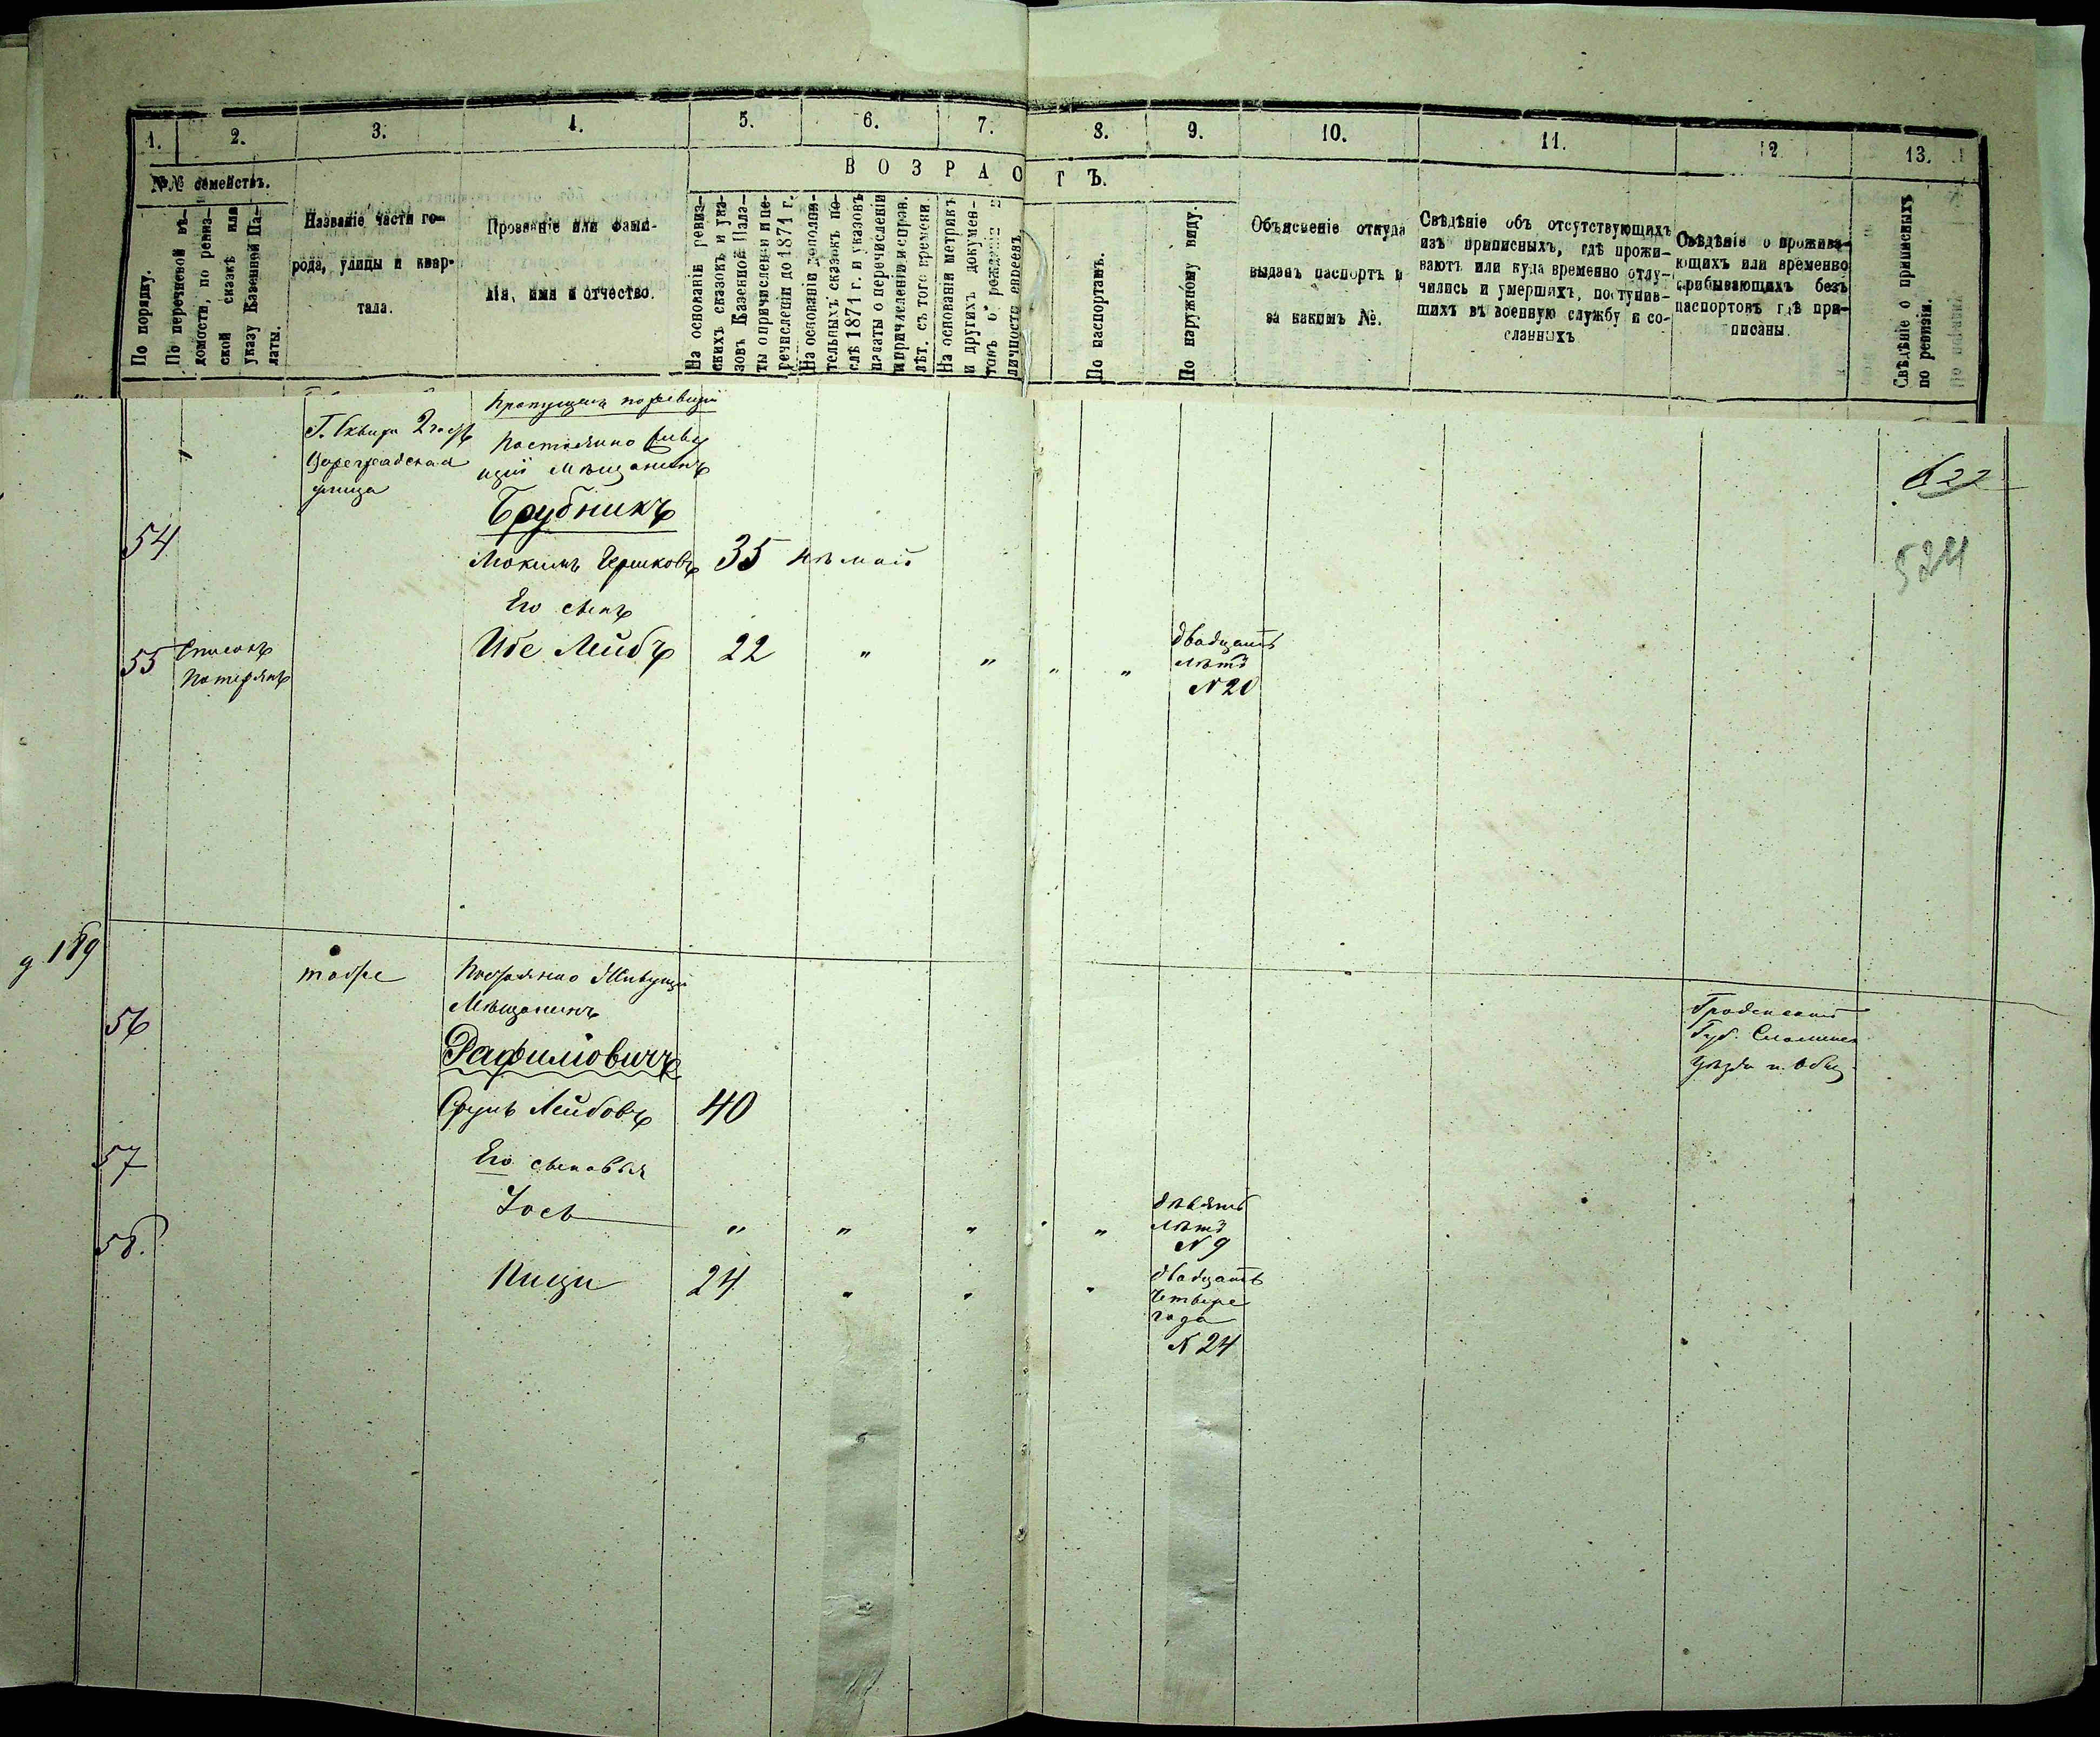 1. 2. 3. 4. 5. 6. 7. 8. 9. 10. 11. 12 13.
№№ семействъ.
В О З Р А С Т Ъ.
По порядку.
По перечневой вѣ-
домости, по ревиз-
ской сказкѣ или
указу Казенной Па-
латы.
Названіе части го-
рода, улицы и квар-
тала.
Прозваніе или фами-
лія, имя и отчество.
На основаніи ревиз-
скихъ сказокъ и ука-
зовъ Казенной Пала-
ты о причисленіи и пе-
речисленіи до 1871 г.
На основаніи дополни-
тельныхъ сказокъ по-
слѣ 1871 г. и указовъ
палаты о перечисленіи
и причисленіи и справ.
лѣт. съ того времени.
На основаніи метрикъ
и другихъ докумен-
товъ о рожденіи и
личности евреевъ.
По паспортамъ.
По наружному виду.
Объясненіе откуда
выданъ паспортъ и
за какимъ №.
Свѣдѣніе объ отсутствующихъ
изъ приписныхъ, гдѣ прожи-
ваютъ или куда временно отлу-
чились и умершихъ, поступив-
шихъ въ военную службу и со-
сланныхъ
Свѣдѣніе о прожива-
ющихъ или временно
прибывающихъ безъ
паспортовъ гдѣ при-
писаны.
Свѣдѣніе о приписныхъ
по ревизіи.
Г. Сквира 2 часть
улица
Постоянно живу
щій Мѣщанинъ
Брубникъ
54
Мокимъ Гершковъ 35
Его сынъ
55 Списокъ
Потерянъ
Ибе Лейбъ 22 " " " " двадцать
лѣтъ
N 20
622
524
д 189
тоже
Постоянно Живущій
Мѣщанинъ
56
Рафиловичъ
Срулъ Лейбовъ 40
Гродненской
Губ. Слонимск
Уѣзда и Общ.
57
Его сыновья
Іось " " " " " девять
лѣтъ
N 9
58.
24 " " " двадцать
четыре
года
N 24